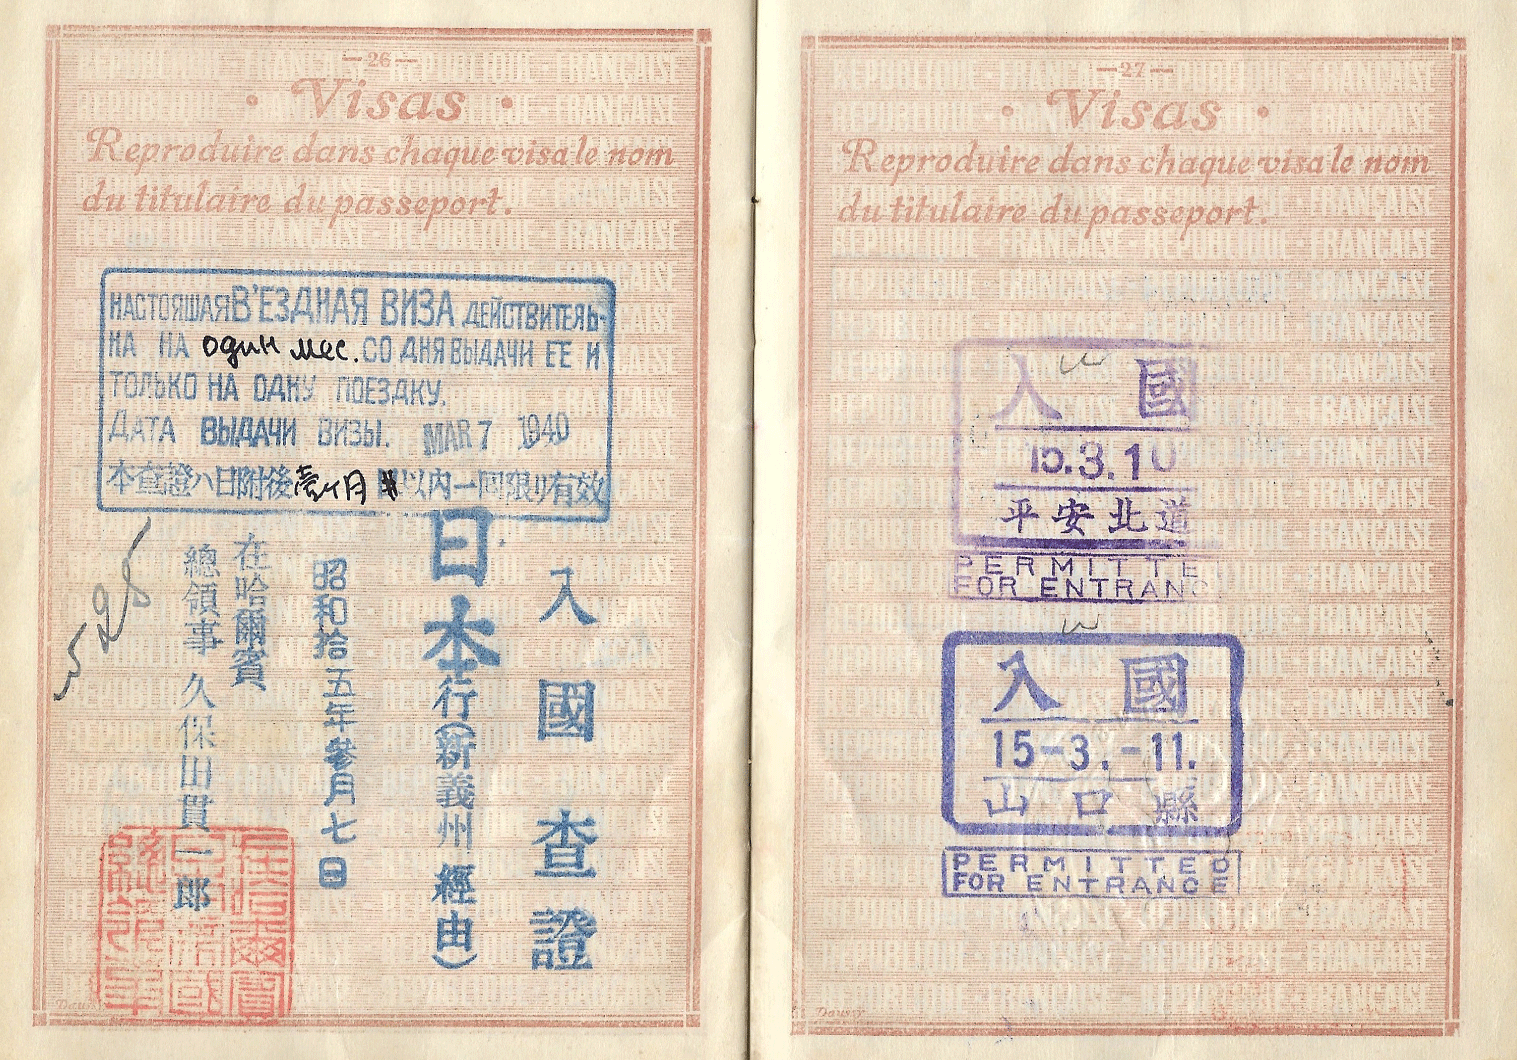 —26—
· Visas ·
Reproduire dans chaque visa le nom
du titulaire du passeport.
НАСТОЯШАЯ В'ЕЗДНАЯ ВИЗА ДЕЙСТВИТЕЛЬ-
НА НА один мес. СО ДНЯ ВЫДАЧИ ЕЕ И
ТОЛЬКО НА ОДНУ ПОЕЗДКУ.
ДАТА ВЫДАЧИ ВИЗЫ. MAR 7 1940
本查證ハ日附後壱ケ月以内一回限リ有效
入國查證
日本行(新義州經由)
昭和拾五年參月七日
在哈爾賓
總領事 久保田貫一郎
525
在哈爾賓
日本帝國
總領事
Dauss
—27—
· Visas ·
Reproduire dans chaque visa le nom
du titulaire du passeport.
入國
15.3.10
平安北道
PERMITTE
FOR ENTRANC
入國
15-3.-11.
山口縣
PERMITTED
FOR ENTRANCE
Daussy